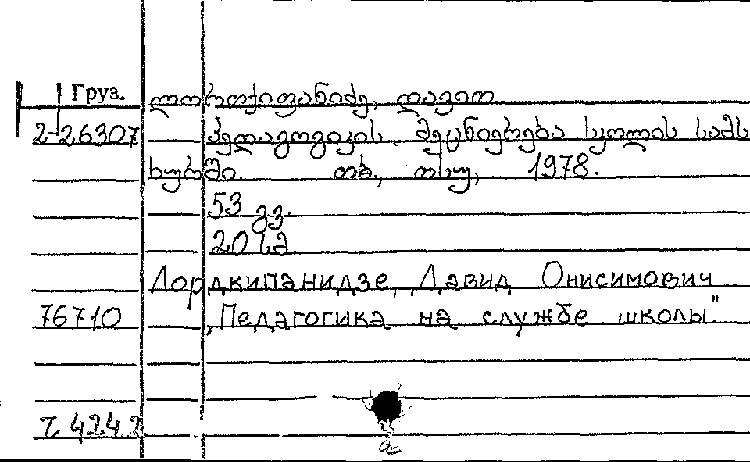 Груз.
ლორთქიფანიძე, დავით
2-26307 პედაგოგიკის მეცნიერება სკოლის სამს
ხურში. თბ., თსუ, 1978.
53 გვ.
Лордкипанидзе, Давид Онисимович
76710 „Педагогика на службе школы."
4242